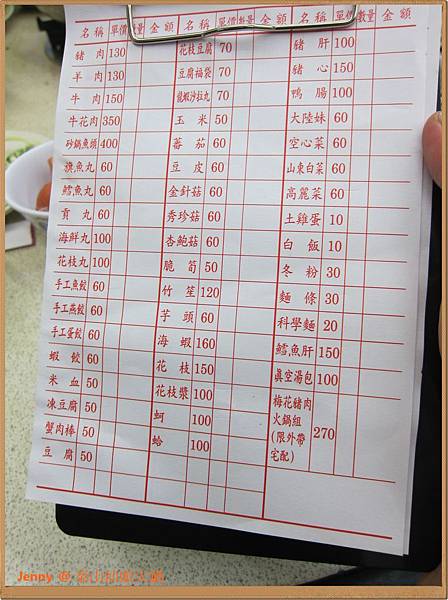 名稱 單價 數量 金額 名稱 單價 數量 金額 名稱 單價 數量 金額
豬肉 130
羊肉 130
牛肉 150
牛花肉 350
砂鍋魚頭 400
旗魚丸 60
鱈魚丸 60
貢丸 60
海鮮丸 100
花枝丸 100
手工魚餃 60
手工燕餃 60
手工蛋餃 60
蝦餃 60
米血 50
凍豆腐 50
蟹肉棒 50
豆腐 50
花枝豆腐 70
豆腐福袋 70
龍蝦沙拉丸 70
玉米 50
蕃茄 60
豆皮 60
金針菇 60
秀珍菇 60
杏鮑菇 60
脆筍 50
竹笙 120
芋頭 60
海蝦 160
花枝 150
花枝漿 100
蚵 100
蛤 100
豬肝 100
豬心 150
鴨腸 100
大陸妹 60
空心菜 60
山東白菜 60
高麗菜 60
土雞蛋 10
白飯 10
冬粉 30
麵條 30
科學麵 20
鱈魚肝 150
真空湯包 100
梅花豬肉
火鍋組
(限外帶 270
宅配)
Jenny @